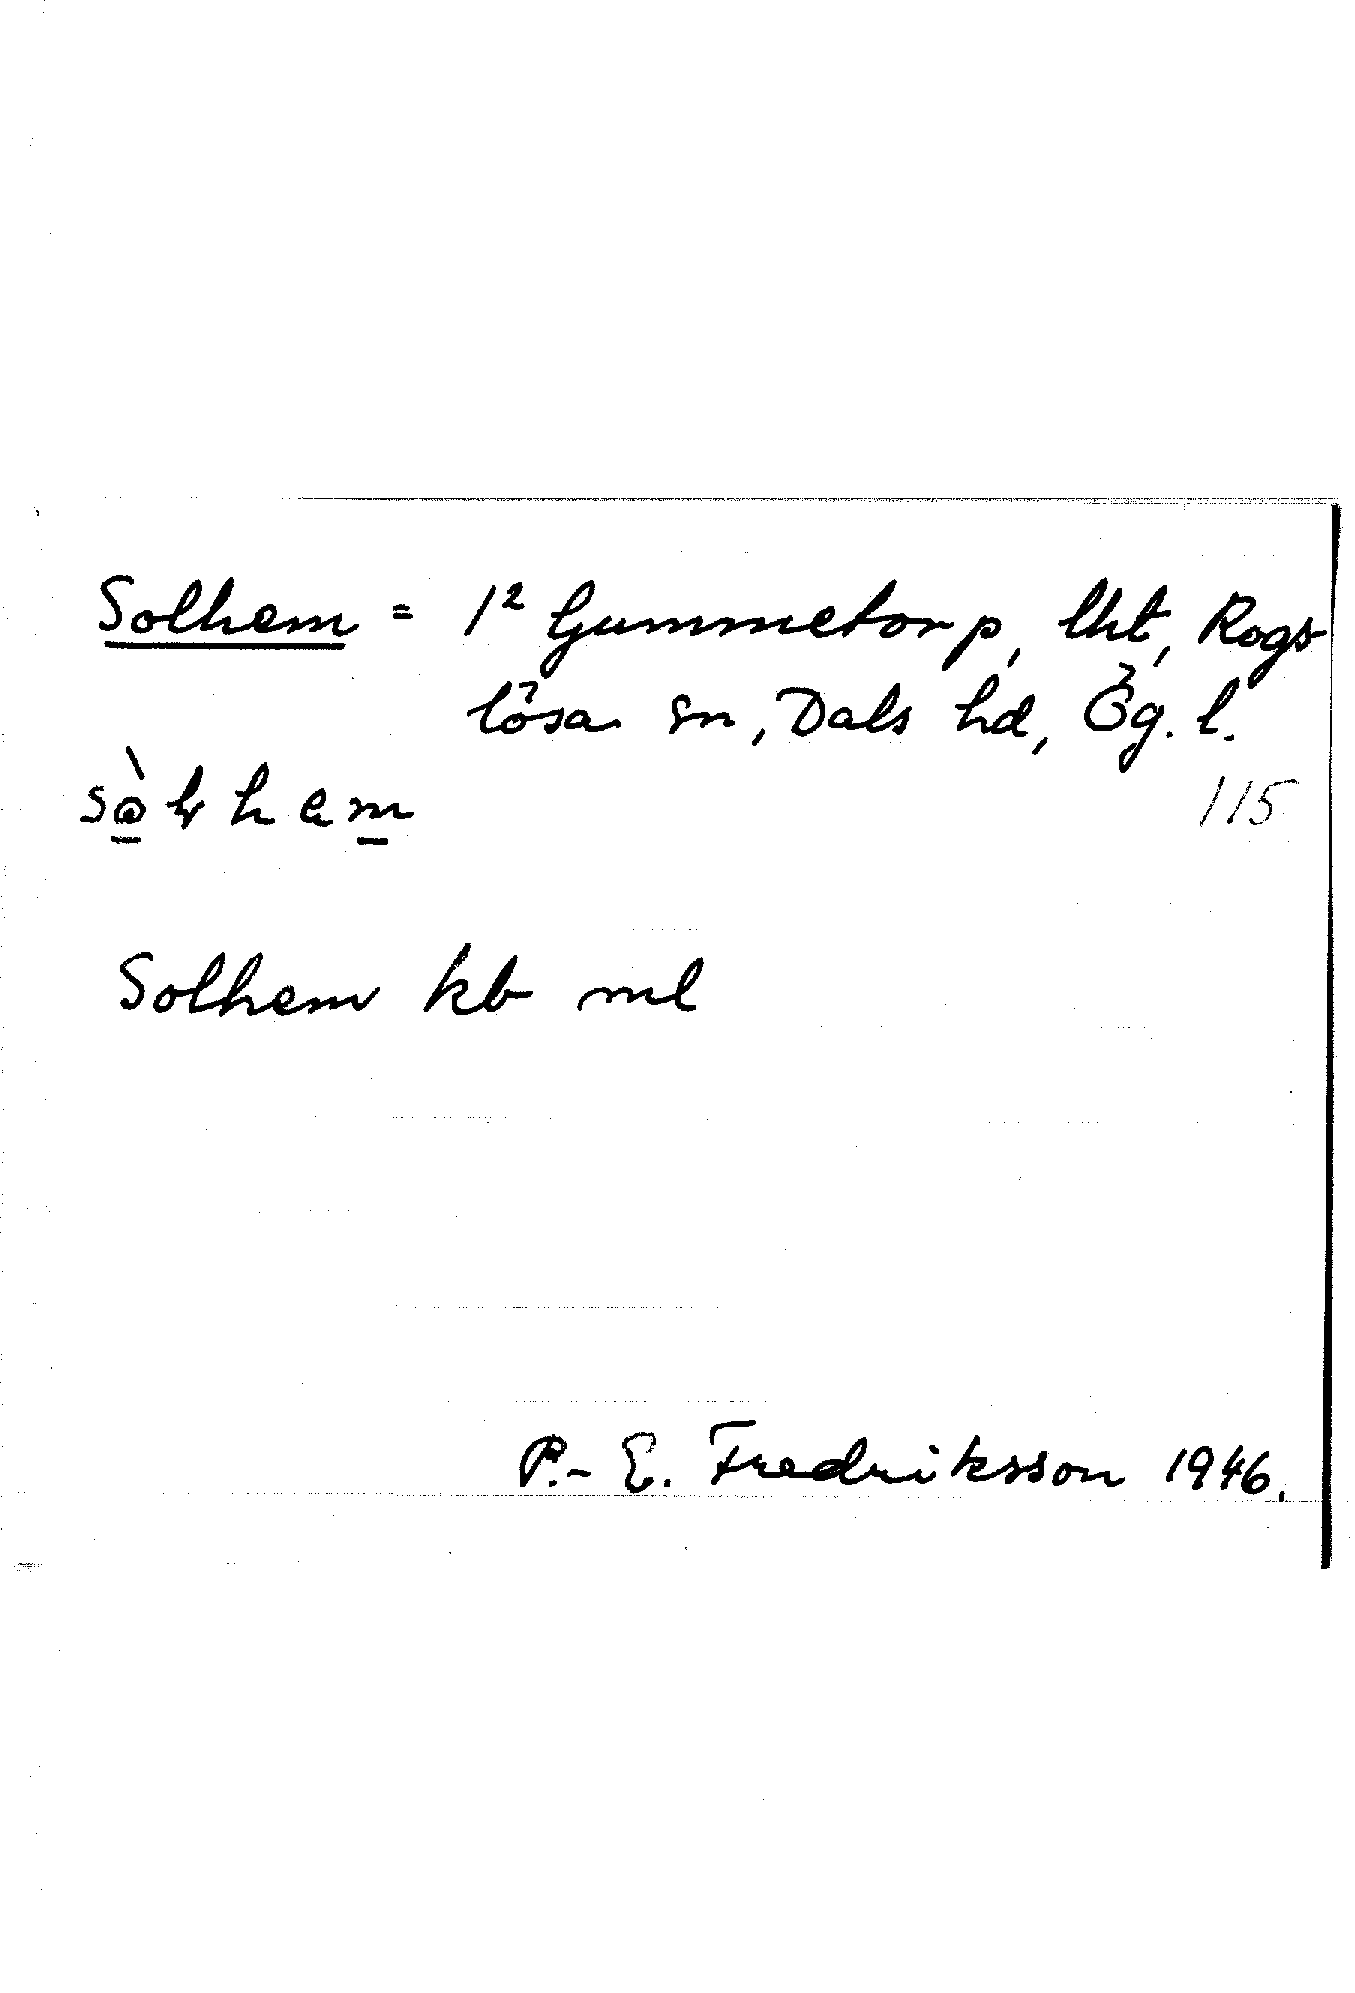 Solhem = 1² Gummetorp, lht, Rogs-
lösa sn, Dals hd, Ög. l.
115
Solhem kb ml
P.-E. Fredriksson 1946.